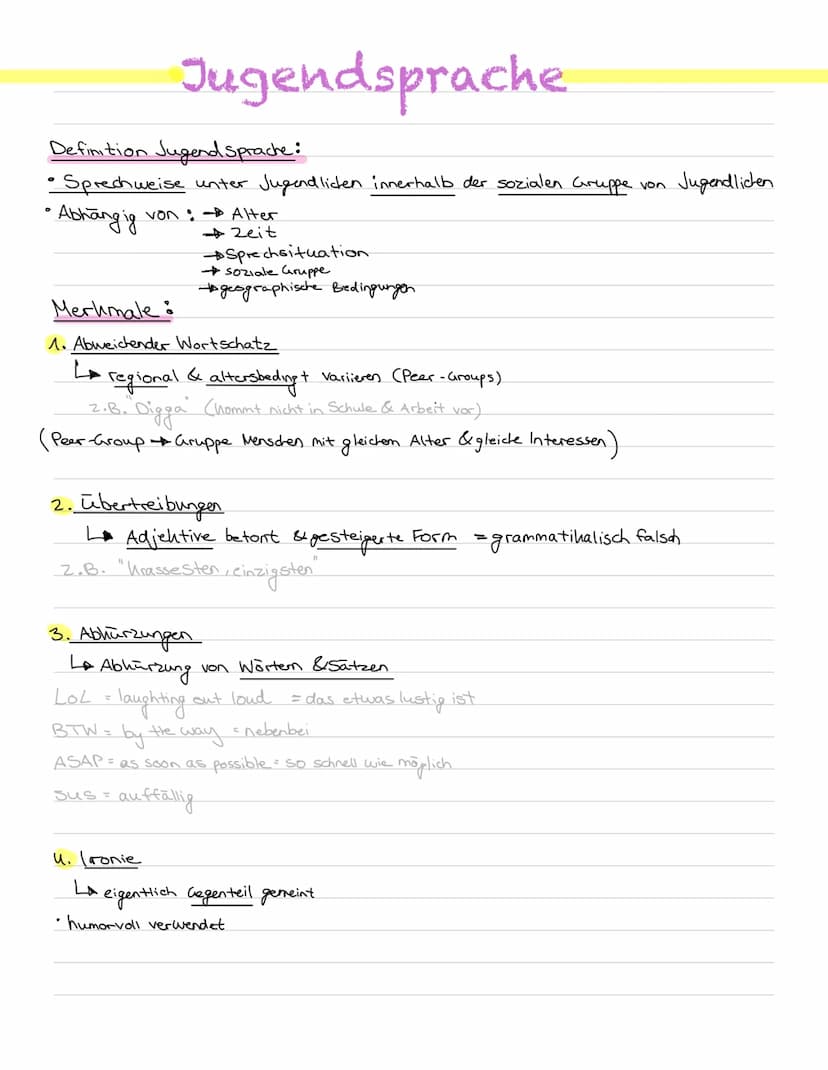 Jugendsprache
Definition Jugendsprache:
• Sprechweise unter Jugendlichen innerhalb der sozialen Gruppe von Jugendlichen
• Abhängig von: → Alter
→ Zeit
→ Sprechsituation
→ soziale Gruppe
→ geographische Bedingungen
Merkmale:
1. Abweichender Wortschatz
↳ regional & altersbedingt variieren (Peer-Groups)
z.B. "Digga" (kommt nicht in Schule & Arbeit vor)
(Peer-Group → Gruppe Menschen mit gleichem Alter & gleiche Interessen)
2. Übertreibungen
↳ Adjektive betont & gesteigerte Form = grammatikalisch falsch
z.B. "krassesten, einzigsten"
3. Abkürzungen
↳ Abkürzung von Wörtern & Sätzen
LoL = laughting out loud = das etwas lustig ist
BTW = by the way = nebenbei
ASAP = as soon as possible = so schnell wie möglich
sus = auffällig
4. Ironie
↳ eigentlich Gegenteil gemeint
• humorvoll verwendet